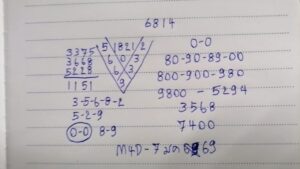 6814
3375
3668
5228
1151
5 1821 2
6 0 3
6 3
9
3-5-6-8-2
5-2-9
0-0 8-9
0-0
80-90-89-00
800-900-980
9800 - 5294
3568
7400
M4D-7